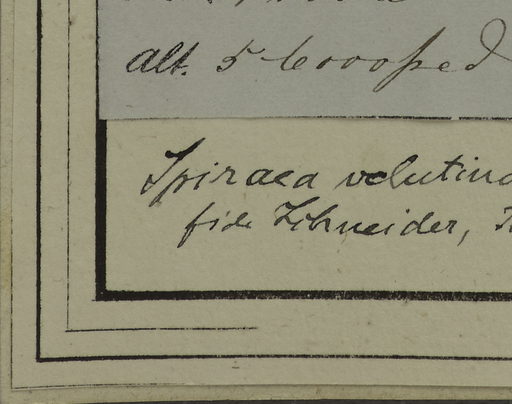 alt. 5-6000 ped
Spiraea velutina
fide Schneider,